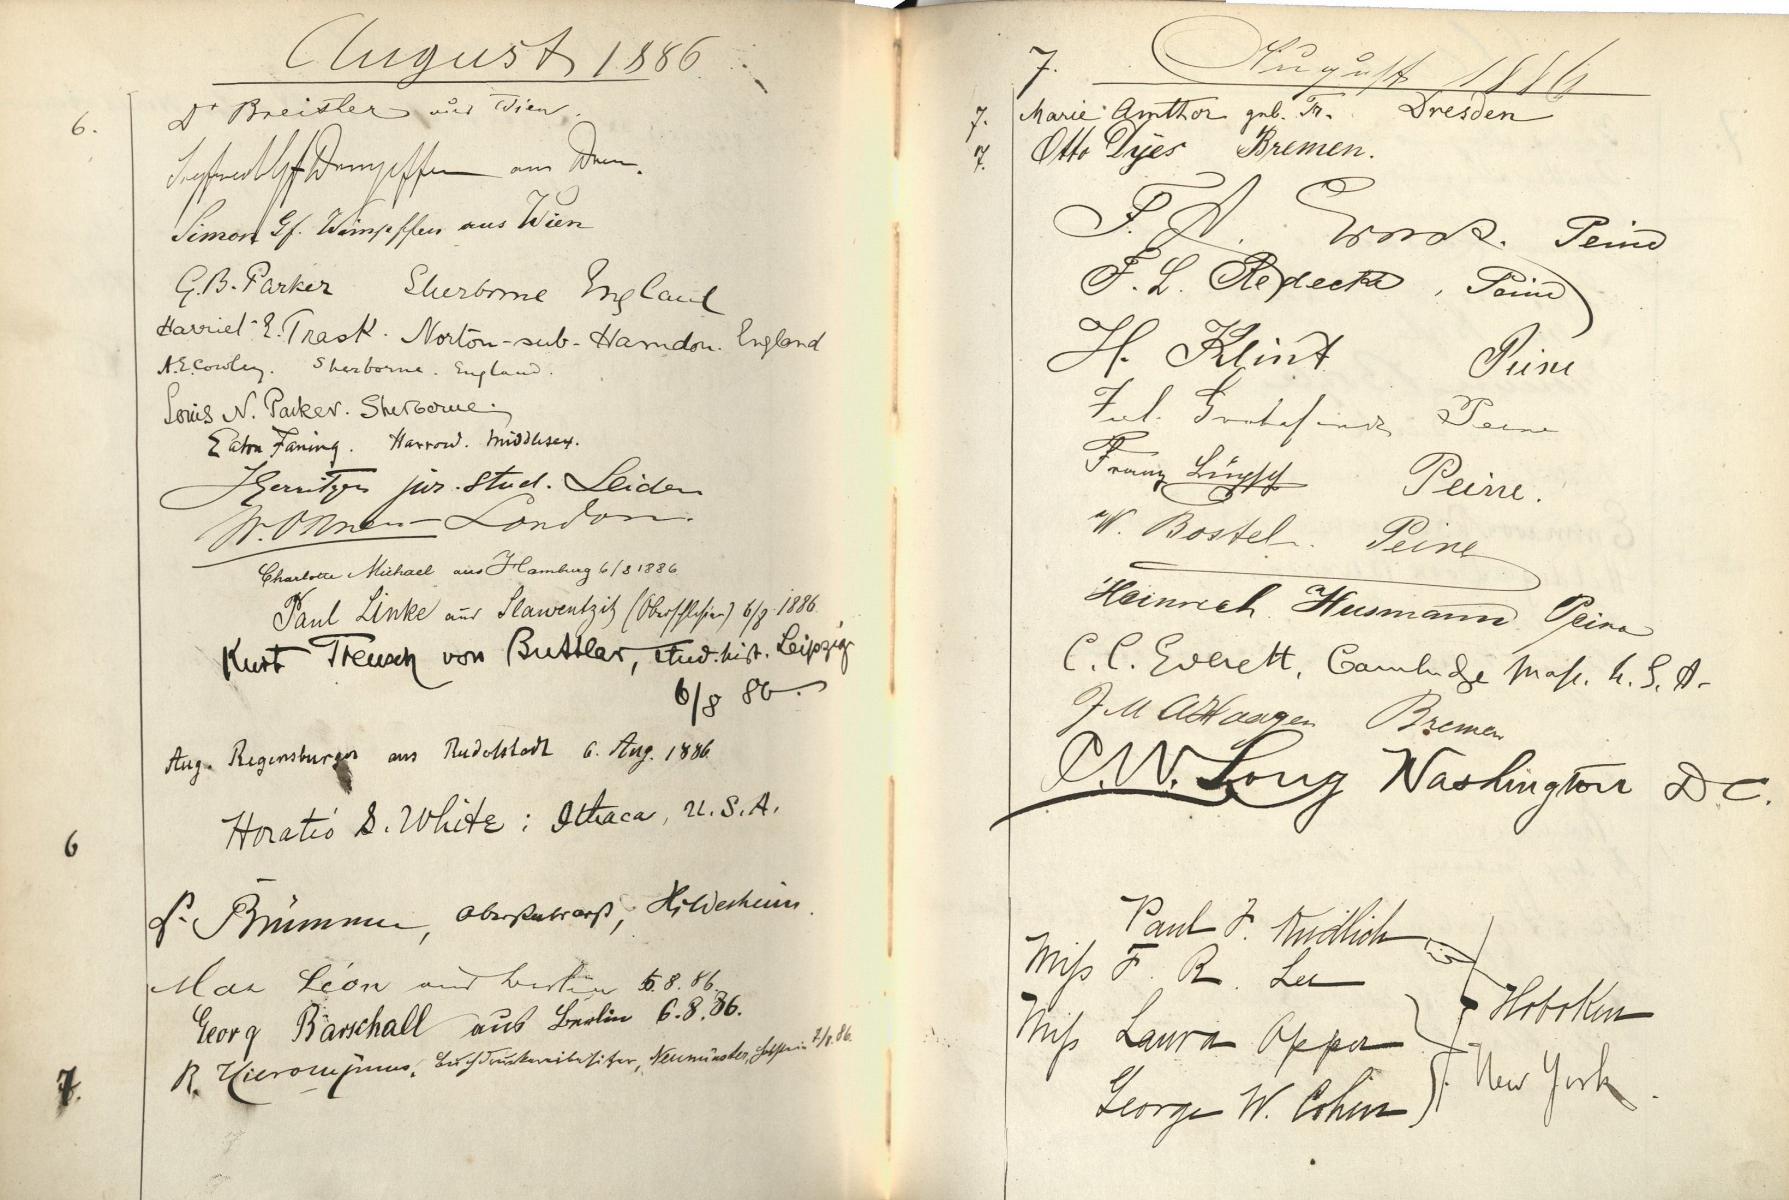 August 1886
6. Dr Breisler aus Wien.
aus
Simon Gf. Wimpffen aus Wien
G.B. Parker Sherborne England
Harriet E. Trask. Norton-sub-Hamdon. England
A.E. Cowley. Sherborne. England.
Louis N. Parker. Sherborne.
Eaton Faning. Harrow. Middlesex.
Gerritzen jur. stud. Leiden
London.
Charlotte Michael aus Hamburg 6/8 1886
Paul Linke aus Slawentzitz (Oberschlesien) 6/8 1886.
Kurt Treusch von Buttlar, stud. hist. Leipzig
6/8 86.
Aug. Regensburger aus Rudolstadt 6. Aug. 1886
6 Horatio S. White: Ithaca, U.S.A.
Dr. Brümmer, Hildesheim.
Max Léon aus Berlin 6.8.86.
Georg Barschall aus Berlin 6.8.86.
7. R. Hieronymus, Buchdruckereibesitzer, Neumünster, Holstein 7/8. 86.
7. August 1886
7. Marie Amthor geb. Dresden
7. Otto Dyes Bremen.
Peine
F. L. Redecke, Peine
H. Klint Peine
Jul. Peine
Franz Peine.
W. Bostel. Peine
Heinrich Husmann Peine
C. C. Everett, Cambridge Mass. U.S.A.
Bremen
C.W. Long Washington D C.
Paul F.
Miss F. R. Lee
Hoboken
Miss Laura Opper
New York.
George W. Cohen